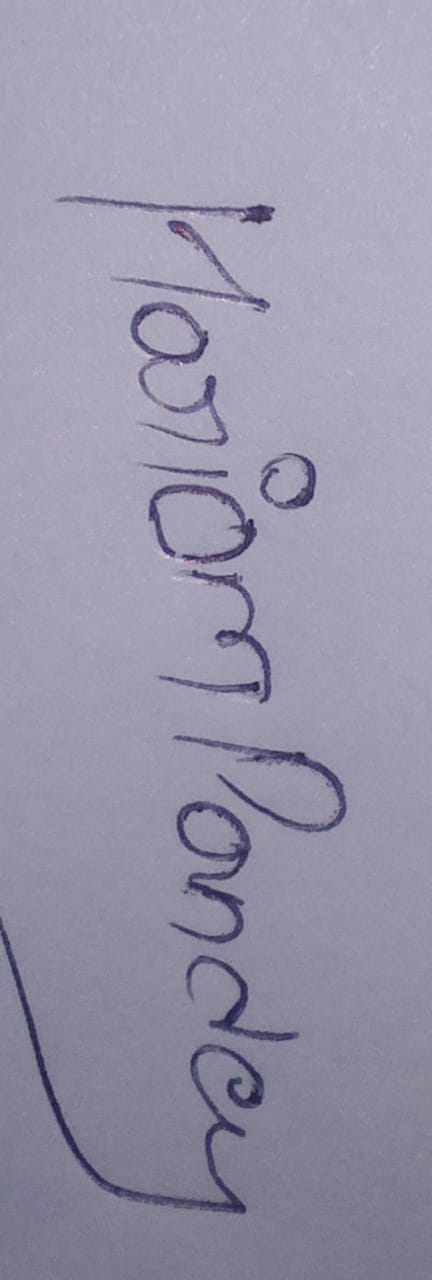 Hariom Pandey